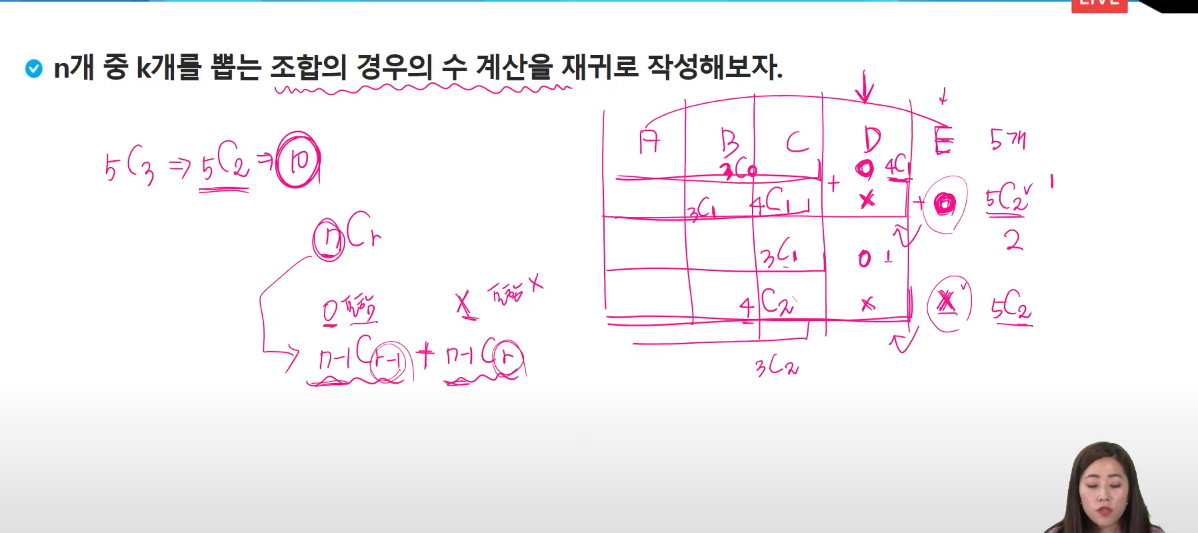 LIVE
n개 중 k개를 뽑는 조합의 경우의 수 계산을 재귀로 작성해보자.
5C3 ⇒ 5C2 ⇒ 10
nCr
O 포함 X 포함X
n-1Cr-1 + n-1Cr
A B C D E 5개
3C0 O 4C1
+
3C1 4C1 X + O 5C2 1
2
3C1 O 1
4C2 X X 5C2
3C2